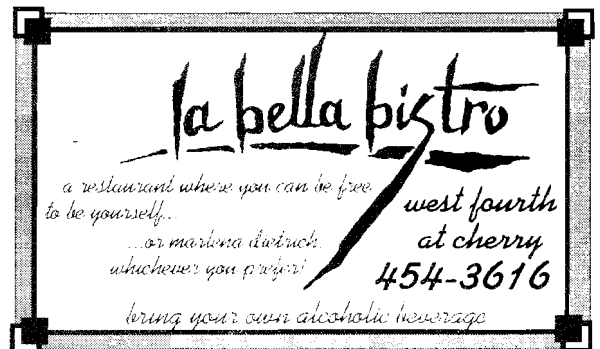 la bella bistro
a restaurant where you can be free
to be yourself...
...or marlena dietrich,
whichever you prefer!
west fourth
at cherry
454-3616
bring your own alcoholic beverage